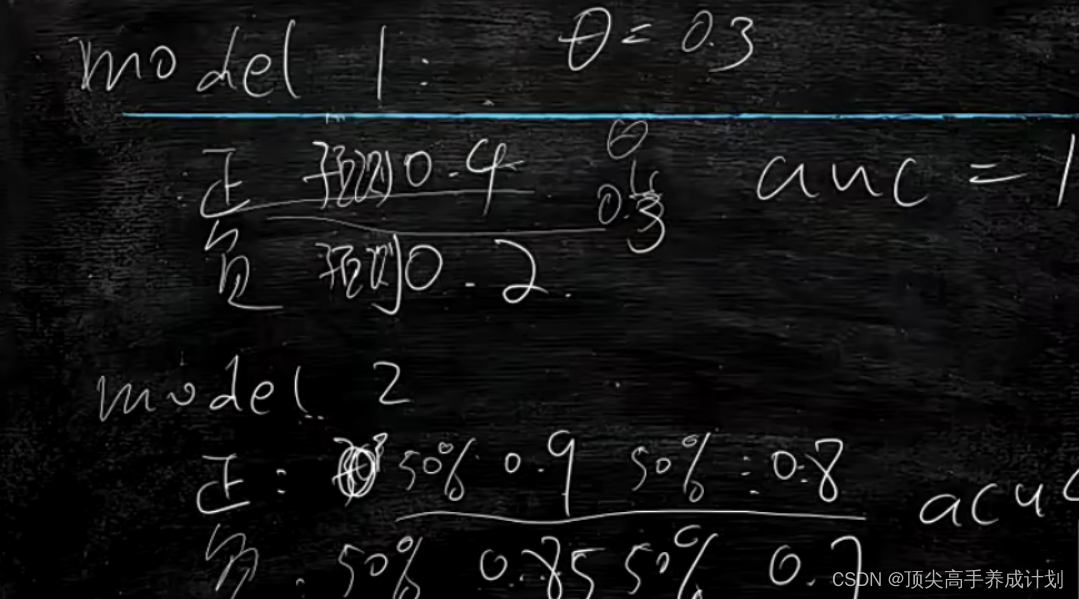 model 1: θ = 0.3
正 预测0.4
θ
0.3
auc = 1
负 预测0.2.
model 2
正: 50% 0.9 50%: 0.8
负. 50% 0.85 50% 0.7
CSDN @顶尖高手养成计划